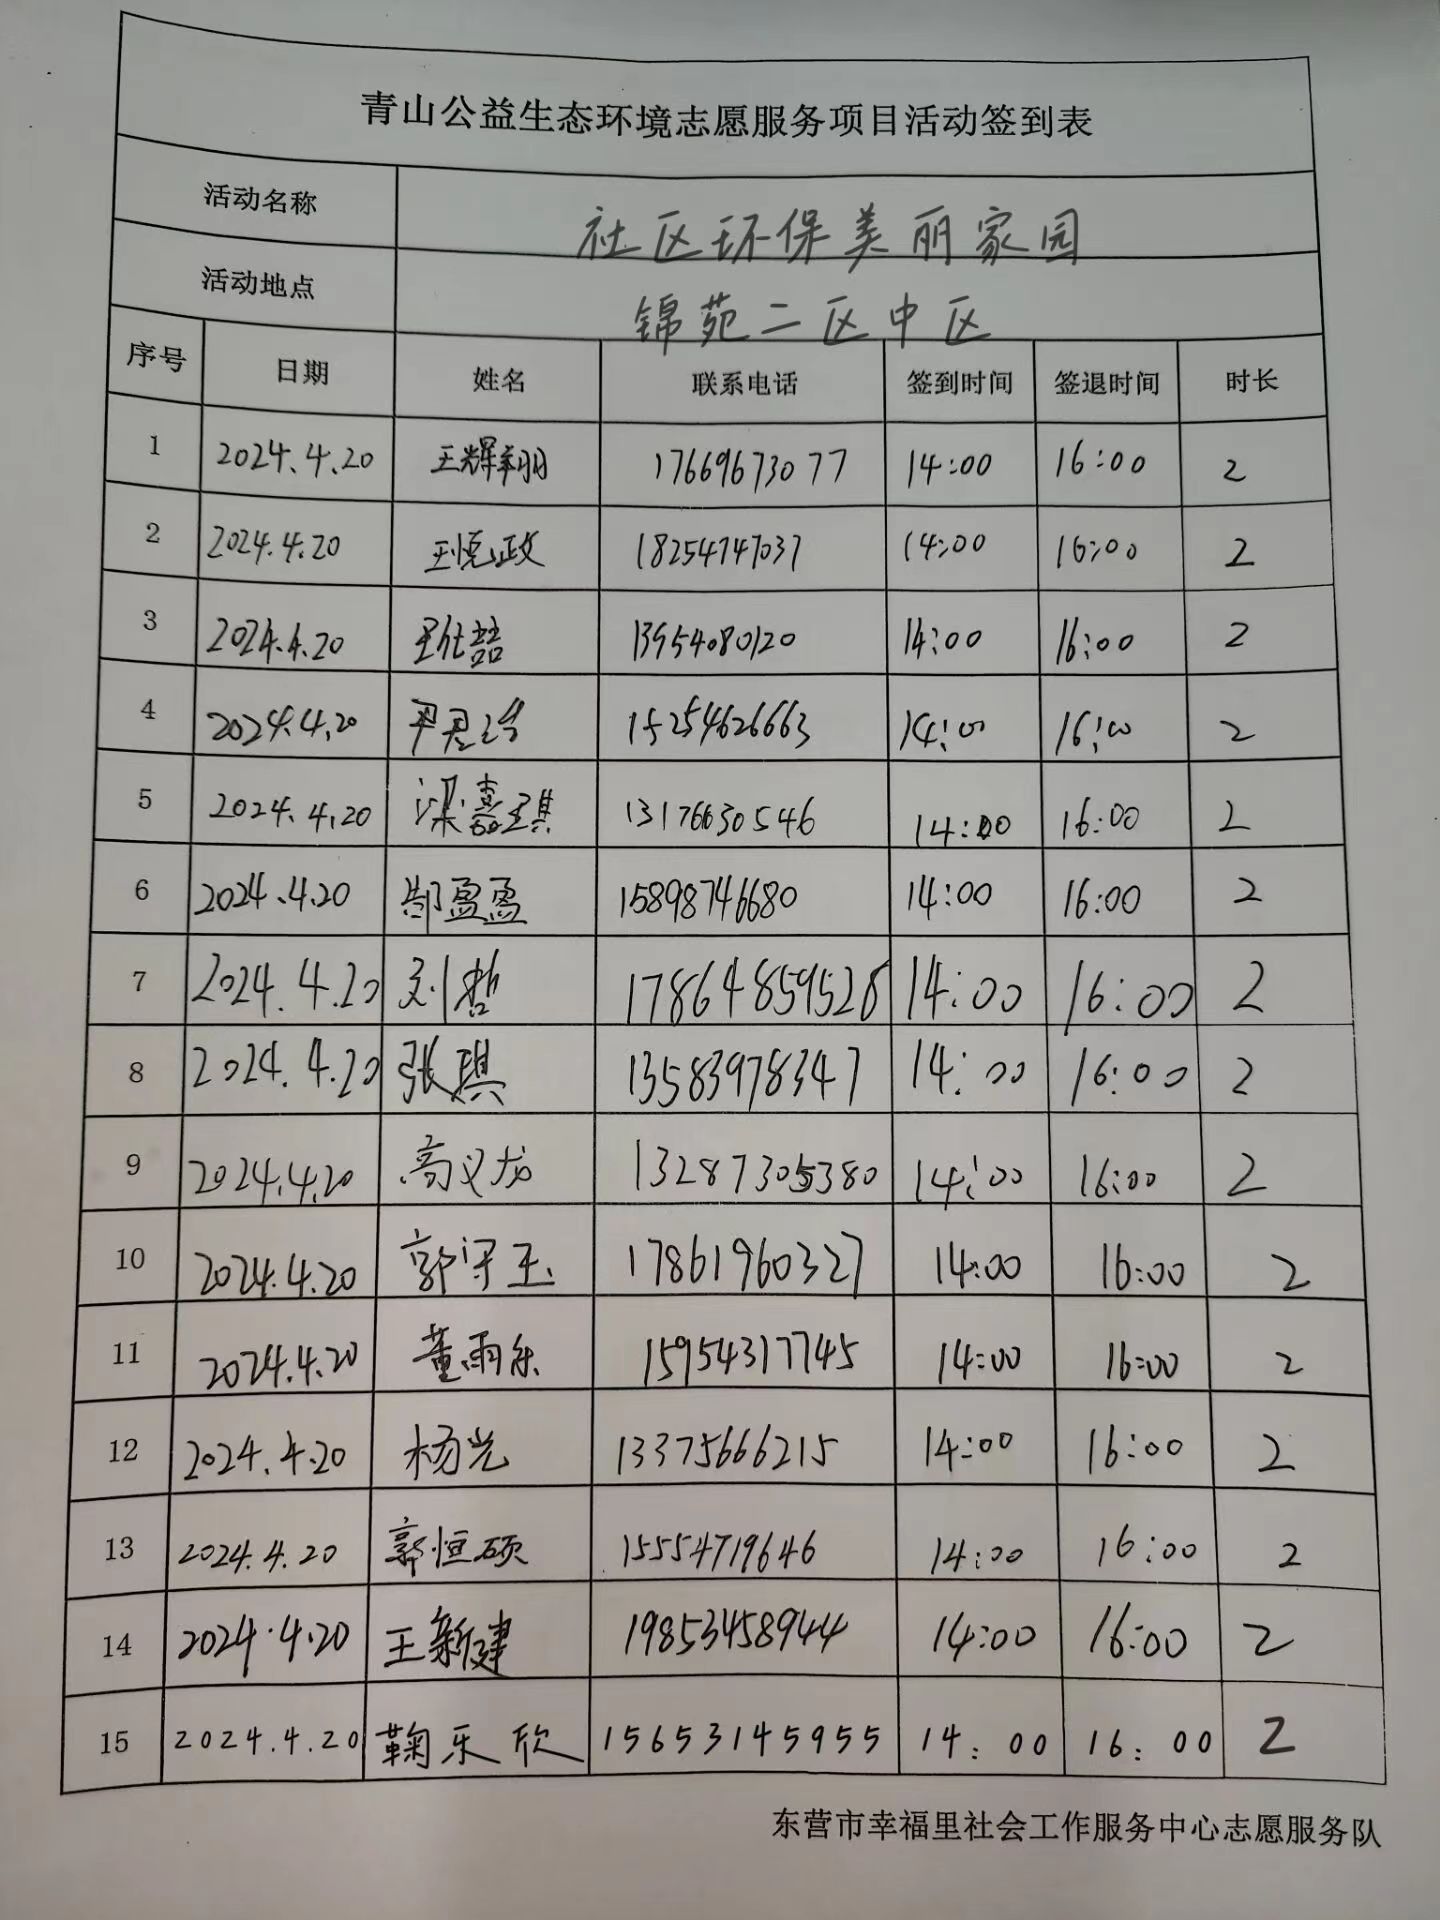 青山公益生态环境志愿服务项目活动签到表
活动名称 社区环保美丽家园
活动地点 锦苑二区中区
序号 日期 姓名 联系电话 签到时间 签退时间 时长
1 2024.4.20 王辉翔 17669673077 14:00 16:00 2
2 2024.4.20 18254747037 14:00 16:00 2
3 2024.4.20 13954080120 14:00 16:00 2
4 2024.4.20 15254626663 14:00 16:00 2
5 2024.4.20 梁嘉琪 13176630546 14:00 16:00 2
6 2024.4.20 郜盈盈 15898746680 14:00 16:00 2
7 2024.4.20 刘哲 17864859528 14:00 16:00 2
8 2024.4.20 张琪 13583978347 14:00 16:00 2
9 2024.4.20 高义龙 13287305380 14:00 16:00 2
10 2024.4.20 郭守玉 17861960327 14:00 16:00 2
11 2024.4.20 董雨乐 15954317745 14:00 16:00 2
12 2024.4.20 杨光 13375666215 14:00 16:00 2
13 2024.4.20 郭恒硕 15554719646 14:00 16:00 2
14 2024.4.20 王新建 19853458944 14:00 16:00 2
15 2024.4.20 鞠乐欣 15653145955 14:00 16:00 2
东营市幸福里社会工作服务中心志愿服务队